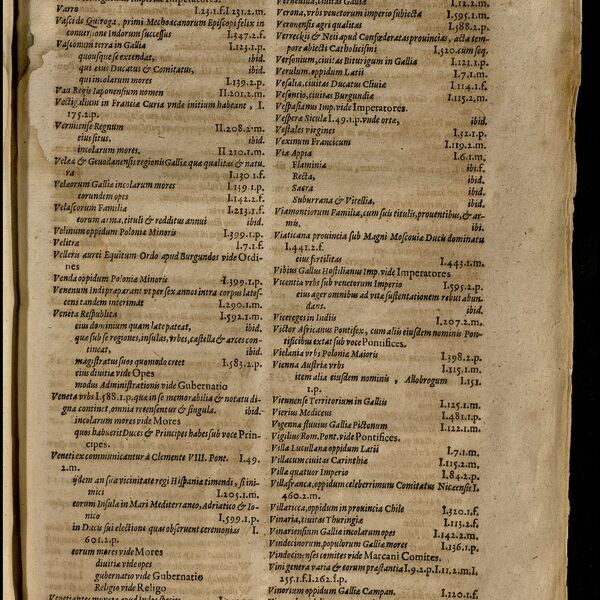 Varro I.231.1.f.I.231.2.m.
Vasci de Quiroga, primi Mechoacanorum Episcopi felix in
conuersione Indorum successus I.347.2.f.
Vasconum terra in Gallia I.123.1.p.
quousque se extendat, ibid.
qui eius Ducatus & Comitatus, ibid.
qui incolarum mores I.139.2.p.
Vau Regis Iaponensium nomen II.201.2.m.
Vectigalium in Francia Curia vnde initium habeant, I.
175.2.p.
Vermiense Regnum II.208.2.m.
eius situs, ibid.
incolarum mores. II 210.1.m.
Velea & Geuodanensis regionis Galliæ quæ qualitas & natu-
ra I.130 1.f.
Velaorum Galliæ incolarum mores I.139.1.p.
eorundem opes I.142.2.f.
Velascorum Familia I.213.1.f.
eorum arma, tituli & redditus annui ibid.
Velinum oppidum Polonia Minoris I.399.1.p.
Velitra I.7.1.f.
Velleris aurei Equitum Ordo apud Burgundos vide Ordi-
nes
Venda oppidum Polonia Minoris I.399.1.p.
Venenum Indi præparant vt per sex annos intra corpus latos-
cens tandem interimat I.290.1.m.
Veneta Respublica I.592.1.m.
eius dominium quam late pateat, ibid.
quæ sub se regiones, insulas, vrbes, castella & arces con-
tineat, ibid.
magistratus suos quomodo creet I.583.2.p.
eius diuitiæ vide Opes
modus Administrationis vide Gubernatio
Veneta vrbs I.588.1.p. quæ in se memorabilia & notatu di-
gna continet, omnia recensentur & singula. ibid.
incolarum mores vide Mores
quos habuerit Duces & Principes habes sub voce Prin-
cipes.
Veneti excommunicantur à Clemente VIII. Pont. I.49.
2.m.
ijdem an sua vicinitate regi Hispaniæ timendi, sint ini-
mici I.205.1.m.
eorum Insula in Mari Mediterraneo, Adriatico & Io-
nico I.599.1.p.
in Ducis sui electione quas obseruent ceremonias I.
601.2.p.
eorum mores vide Mores
diuitiæ vide opes
gubernatio vide Gubernatio
Religio vide Religo
I.12.2.m.
Verona, vrbs venetorum imperio subiecta I.595.1.m.
Veronensis agri qualitas I.588.2.p.
Verreckis & Neii apud Confœderatas prouincias, acta tem-
pore abiecti Catholicismi I.520.cum seq.
Versonium, ciuitas Biturigum in Gallia I.121.1.p.
Verulum, oppidum Latii I.7.1.m.
Vesalia, ciuitas Ducatus Cliuiæ I.114.1.f.
Vesontio, ciuitas Burgundiæ I.115.2.m.
Vespasianus Imp. vide Imperatores.
Vesperæ Siculæ I.49.1.p. vnde ortæ, ibid.
Vestales virgines I.52.1.p.
Vexinum Francicum I.119.2.m.
Via Appia I.6.1.m,
Flaminia ibi.f.
Recta, ibid.
Sacra ibid.
Suburrana & Vitellia, ibid.
Viamontiorum Familia, cum suis titulis, prouentibus, & ar-
mis, ibi.
Viaticana prouincia sub Magni Moscouiæ Ducis dominatu
I.441.2.f.
eius fertilitas I.443.1.m.
Vibius Gallus Hostilianus Imp. vide Imperatores
Vicentia vrbs sub venetorum Imperio I.595.2.p.
eius ager omnibus ad vitæ sustentationem rebus abun-
dans. ibid.
Vicereges in Indiis I.207.2.m.
Victor Africanus Pontifex, cum aliis eiusdem nominis Pon-
tificibus extat sub voce Pontifices.
Vielania vrbs Polonia Maioris I.398.2.p.
Vienna Austriæ vrbs I.115.1.m.
item alia eiusdem nominis, Allobrogum I.151.
1.p.
Viennense Territorium in Galliis I.125.1.m.
Vierius Mediceus I.481.1.p.
Vigenna fluuius Gallia Pictonum I.122.1.m.
Vigilius Rom. Pont. vide Pontifices.
Villa Lucullana oppidum Latii I.7.1.m.
Villacum ciuitas Carinthiæ I.115.2.m.
Villa quatuor Imperio I.84.2.p.
Villafranca, oppidum celeberrimum Comitatus Nicaensis I.
460.2.m.
Villaricca, oppidum in prouincia Chile I.320.1.f.
Vinaria, ciuitas Thuringiæ I.113.2.f.
Vinariensium Galliæ incolarum opes I.142.1.m.
Vindecinorum, populorum Galliæ mores I.136.1.p.
Vindocinenses comites vide Marcani Comites.
Vini genera varia & eorum præstantia I.9.2.p.I.11.2.m.I.
255.1.f.I.262.1.p.
Vinorium oppidum Galliæ Campan. I.120.1.f.